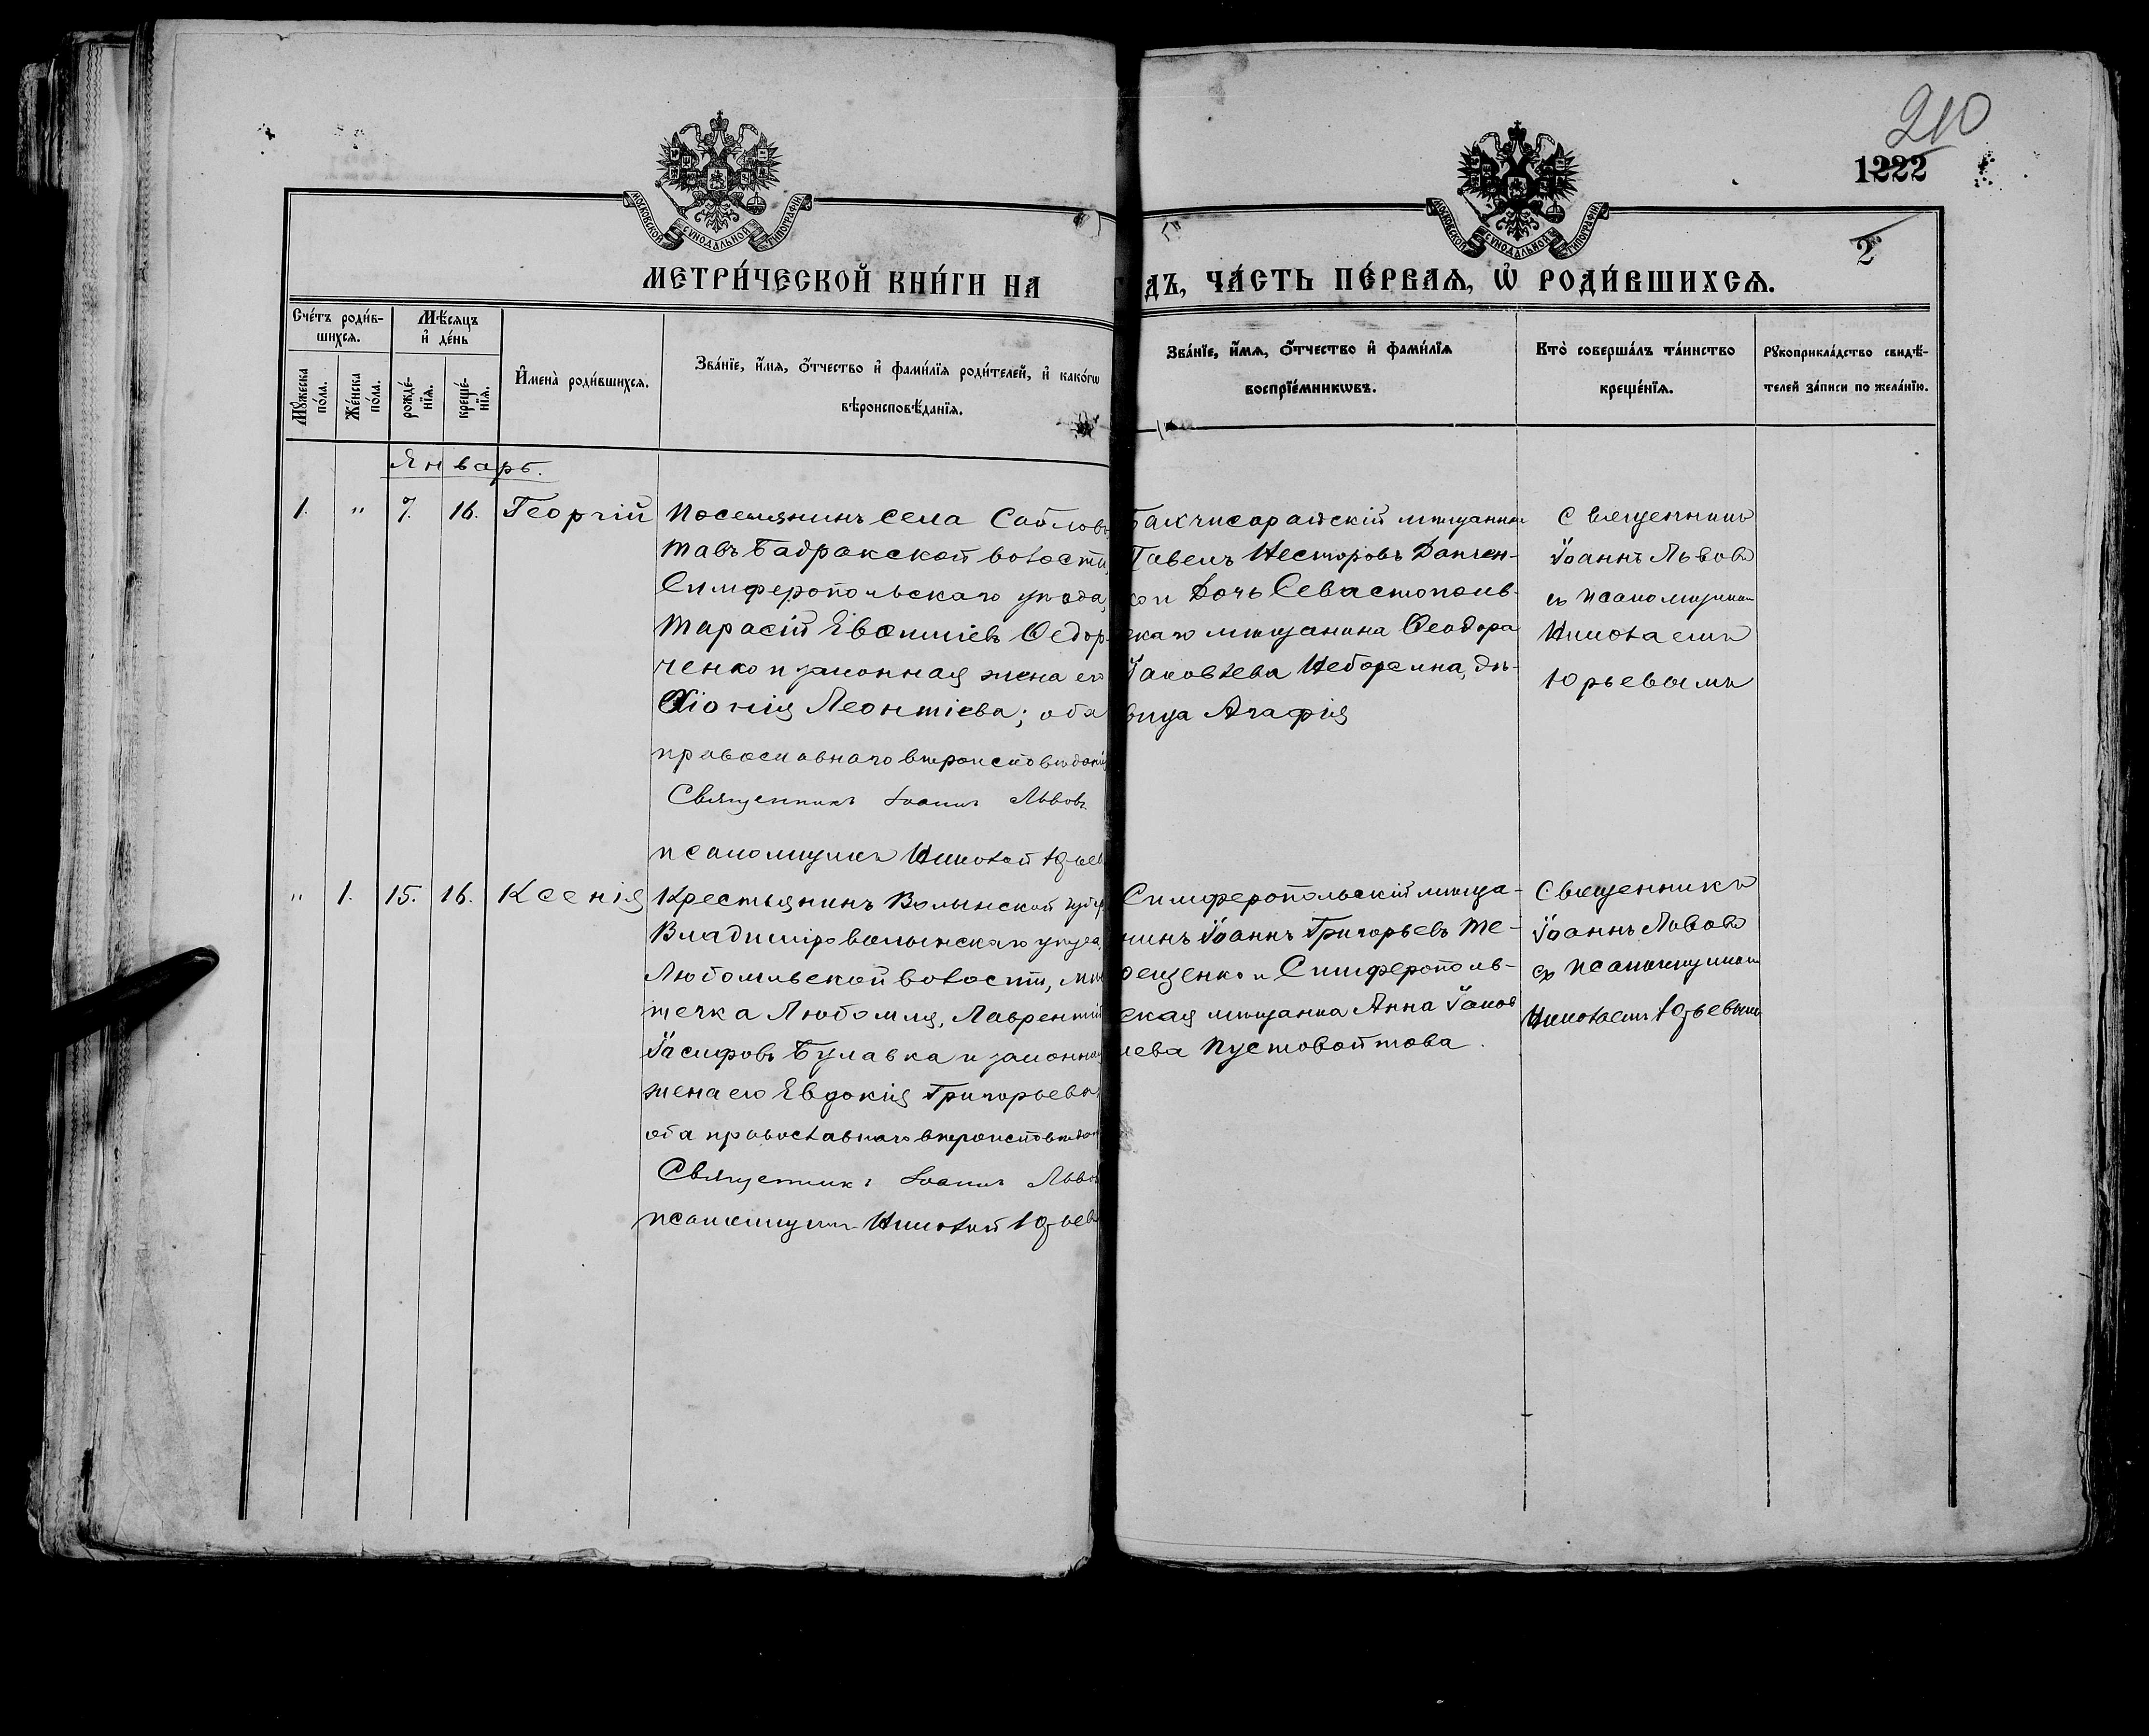 210
1222
МОСКОВСКОЙ СѴНОДАЛЬНОЙ ТИПОГРАФІИ
МОСКОВСКОЙ СѴНОДАЛЬНОЙ ТИПОГРАФІИ
2
МЕТРИ́ЧЕСКОЙ КНИ́ГИ НА
ДЪ, ЧА́СТЬ ПЕ́РВАѦ, Ѡ҆ РОДИ́ВШИХСѦ.
Сче́тъ роди́в-
шихсѧ.
Мѣ́сяцъ
и҆ де́нь
Мꙋ́жеска
по́ла.
Же́нска
по́ла.
рожде́-
нїѧ.
креще́-
нїѧ.
И҆мена̀ роди́вшихсѧ.
Зва́нїе, и҆́мѧ, ѻ҆́тчество и҆ фами́лїѧ роди́телей, и҆ како́гѡ
вѣроисповѣ́данїѧ.
Зва́нїе, и҆́мѧ, ѻ҆́тчество и҆ фами́лїѧ
воспрїе́мникѡвъ.
Кто̀ соверша́лъ та́инство
креще́нїѧ.
Рꙋкоприкла́дство свидѣ́-
телей за́писи по жела́нїю.
Январь.
1. " 7. 16. Георгій
Поселянинъ села
тавъ Бадракской волости,
Симферопольскаго уѣзда,
Тарасій Федор-
ченко и законная жена его
Хіонія Леонтіева; оба
православнаго вѣроисповѣданія
Священникъ Іоаннъ Львовъ
псаломщикъ Николай Юрьев
Бахчисарайскій мѣщанинъ
Павелъ Несторовъ Данчен-
ко и Дочь Севастополь-
скаго мѣщанина Феодора
Іаковлева дѣ-
вица Агафія
Священникъ
Іоаннъ Львовъ
съ псаломщикомъ
Николаемъ
Юрьевымъ
" 1. 15. 16. Ксенія
Крестьянинъ Волынской губер
Владиміроволынскаго уѣзда,
Любомльской волости, мѣс
течка Любомля, Лаврентій
Іосифовъ Булавка и законная
жена его Евдокія Григорьева
оба православнаго вѣроисповѣдан
Священникъ Іоаннъ Львов
псаломщикъ Николай Юрьев
Симферопольскій мѣща-
нинъ Іоаннъ Григорьевъ Те-
рещенко и Симферополь-
ская мѣщанка Анна Іаков
лева Пустовойтова.
Священникъ
Іоаннъ Львовъ
съ псаломщикомъ
Николаемъ Юрьевымъ